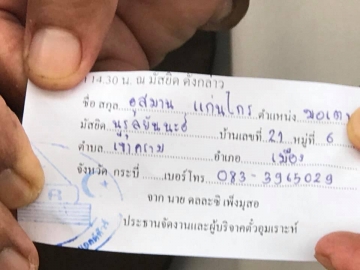 14.30 น. ณ มัสยิด ดังกล่าว
ชื่อ สกุล อุสมาน แก่นไกร ตำแหน่ง
มัสยิด นูรุลยันนะฮ์ บ้านเลขที่ 21 หมู่ที่ 6
ตำบล เขาคราม อำเภอ เมือง
จังหวัด กระบี่ เบอร์โทร 083-3965029
จาก นาย ดลละชิ เพ็งมุสอ
ประธานจัดงานและผู้บริจาคตั๋วอุมเราะห์